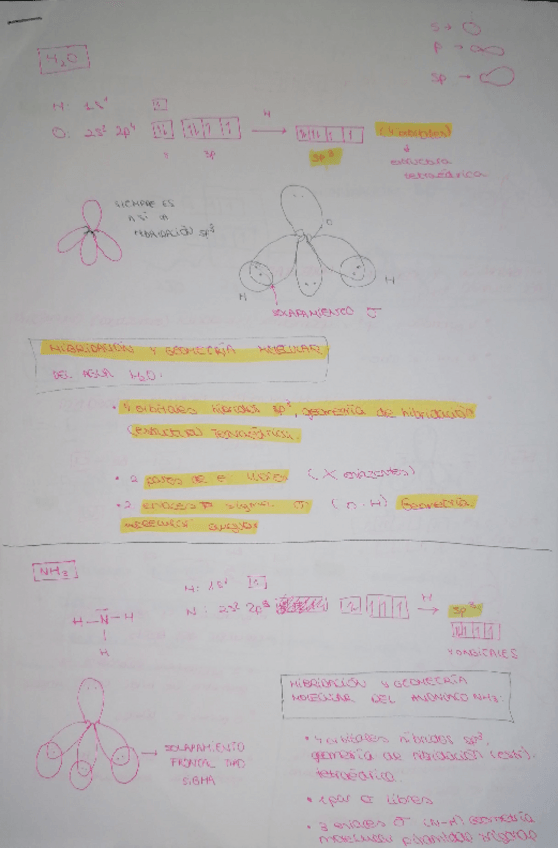 S →
P →
Sp →
H₂O
H: 1s¹ 1
H
O: 2s² 2p⁴ 1L 1L 1 1 → 1L 1L 1 1 (4 orbitales)
s 3p sp³ ↓
estructura
tetraédrica
SIEMPRE ES
ASÍ LA
HIBRIDACIÓN sp³
O
H H
SOLAPAMIENTO σ
HIBRIDACIÓN Y GEOMETRÍA MOLECULAR
DEL AGUA H₂O.
• 4 orbitales híbridos sp³, geometría de hibridación
(estructura) tetraédrica.
• 2 pares de e⁻ libres (X enlazantes)
• 2 enlaces sigma σ (O-H) Geometría
molecular angular
NH₃
H: 1s¹ 1
N: 2s² 2p³ 1L 1 1 1 → sp³
H
H–N–H
H
1L 1 1 1
4 ORBITALES
HIBRIDACIÓN Y GEOMETRÍA
MOLECULAR DEL AMONIACO NH₃:
→ SOLAPAMIENTO
FRONTAL TIPO
SIGMA
• 4 orbitales híbridos sp³,
geometría de hibridación (estr).
tetraédrica.
• 1 par e⁻ libres
• 3 enlaces σ (N-H) geometría
molecular piramidal trigonal